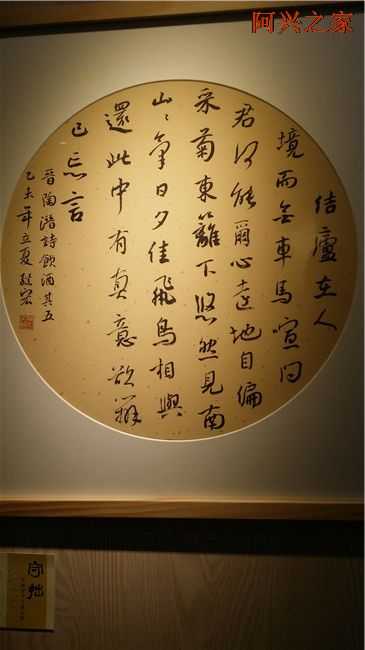 阿兴之家
结廬在人
境而無車馬喧问
君何能爾心遠地自偏
采菊東籬下悠然見南
山〻氣日夕佳飛鳥相與
還此中有真意欲辨
已忘言
晉陶潛詩飲酒其五
乙未年立夏
守拙